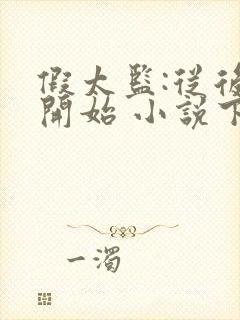 假太監:從後
開始 小說下
一濁